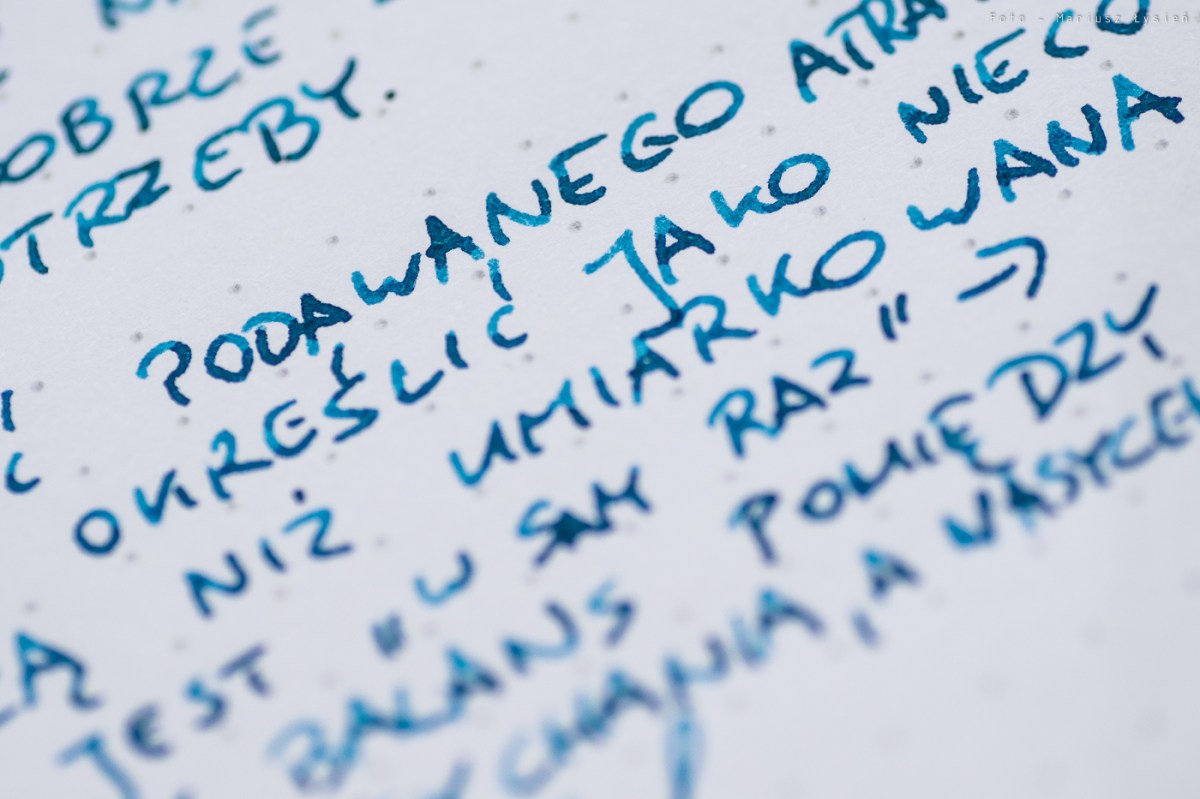 Foto - Mariusz Łysień
OBRZE
TRZEBY.
PODAWANEGO ATRA
OKREŚLIĆ JAKO NIECO
NIŻ UMIARKOWANA
JEST "W SAM RAZ" →
BALANS POMIĘDZY
CHANIA, A NASYCE